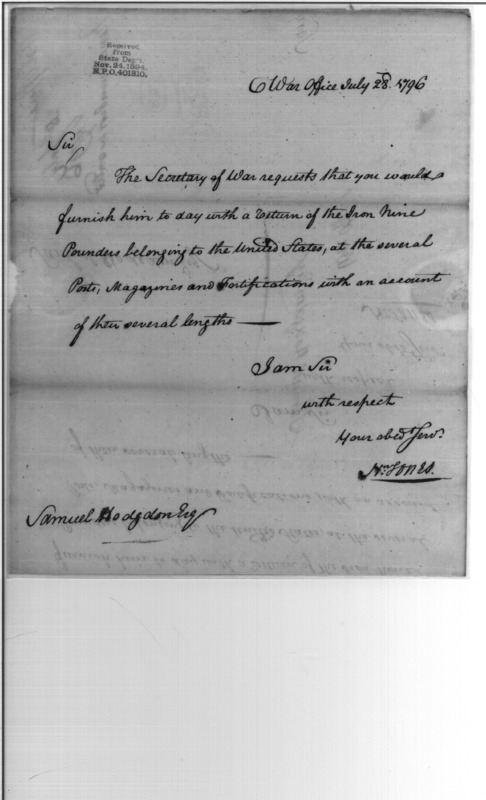 Received
from
State Dep't.
Nov. 24. 1894.
R.P.O. 401810.
War Office July 28th. 1796
Sir
The Secretary of War requests that you would
furnish him to day with a Return of the Iron Nine
Pounders belonging to the United States, at the several
Posts, Magazines and Fortifications with an account
of their several lengths —
I am Sir
with respect
Your obedt. Servt.
Nn. Jones.
Samuel Hodgdon Esq